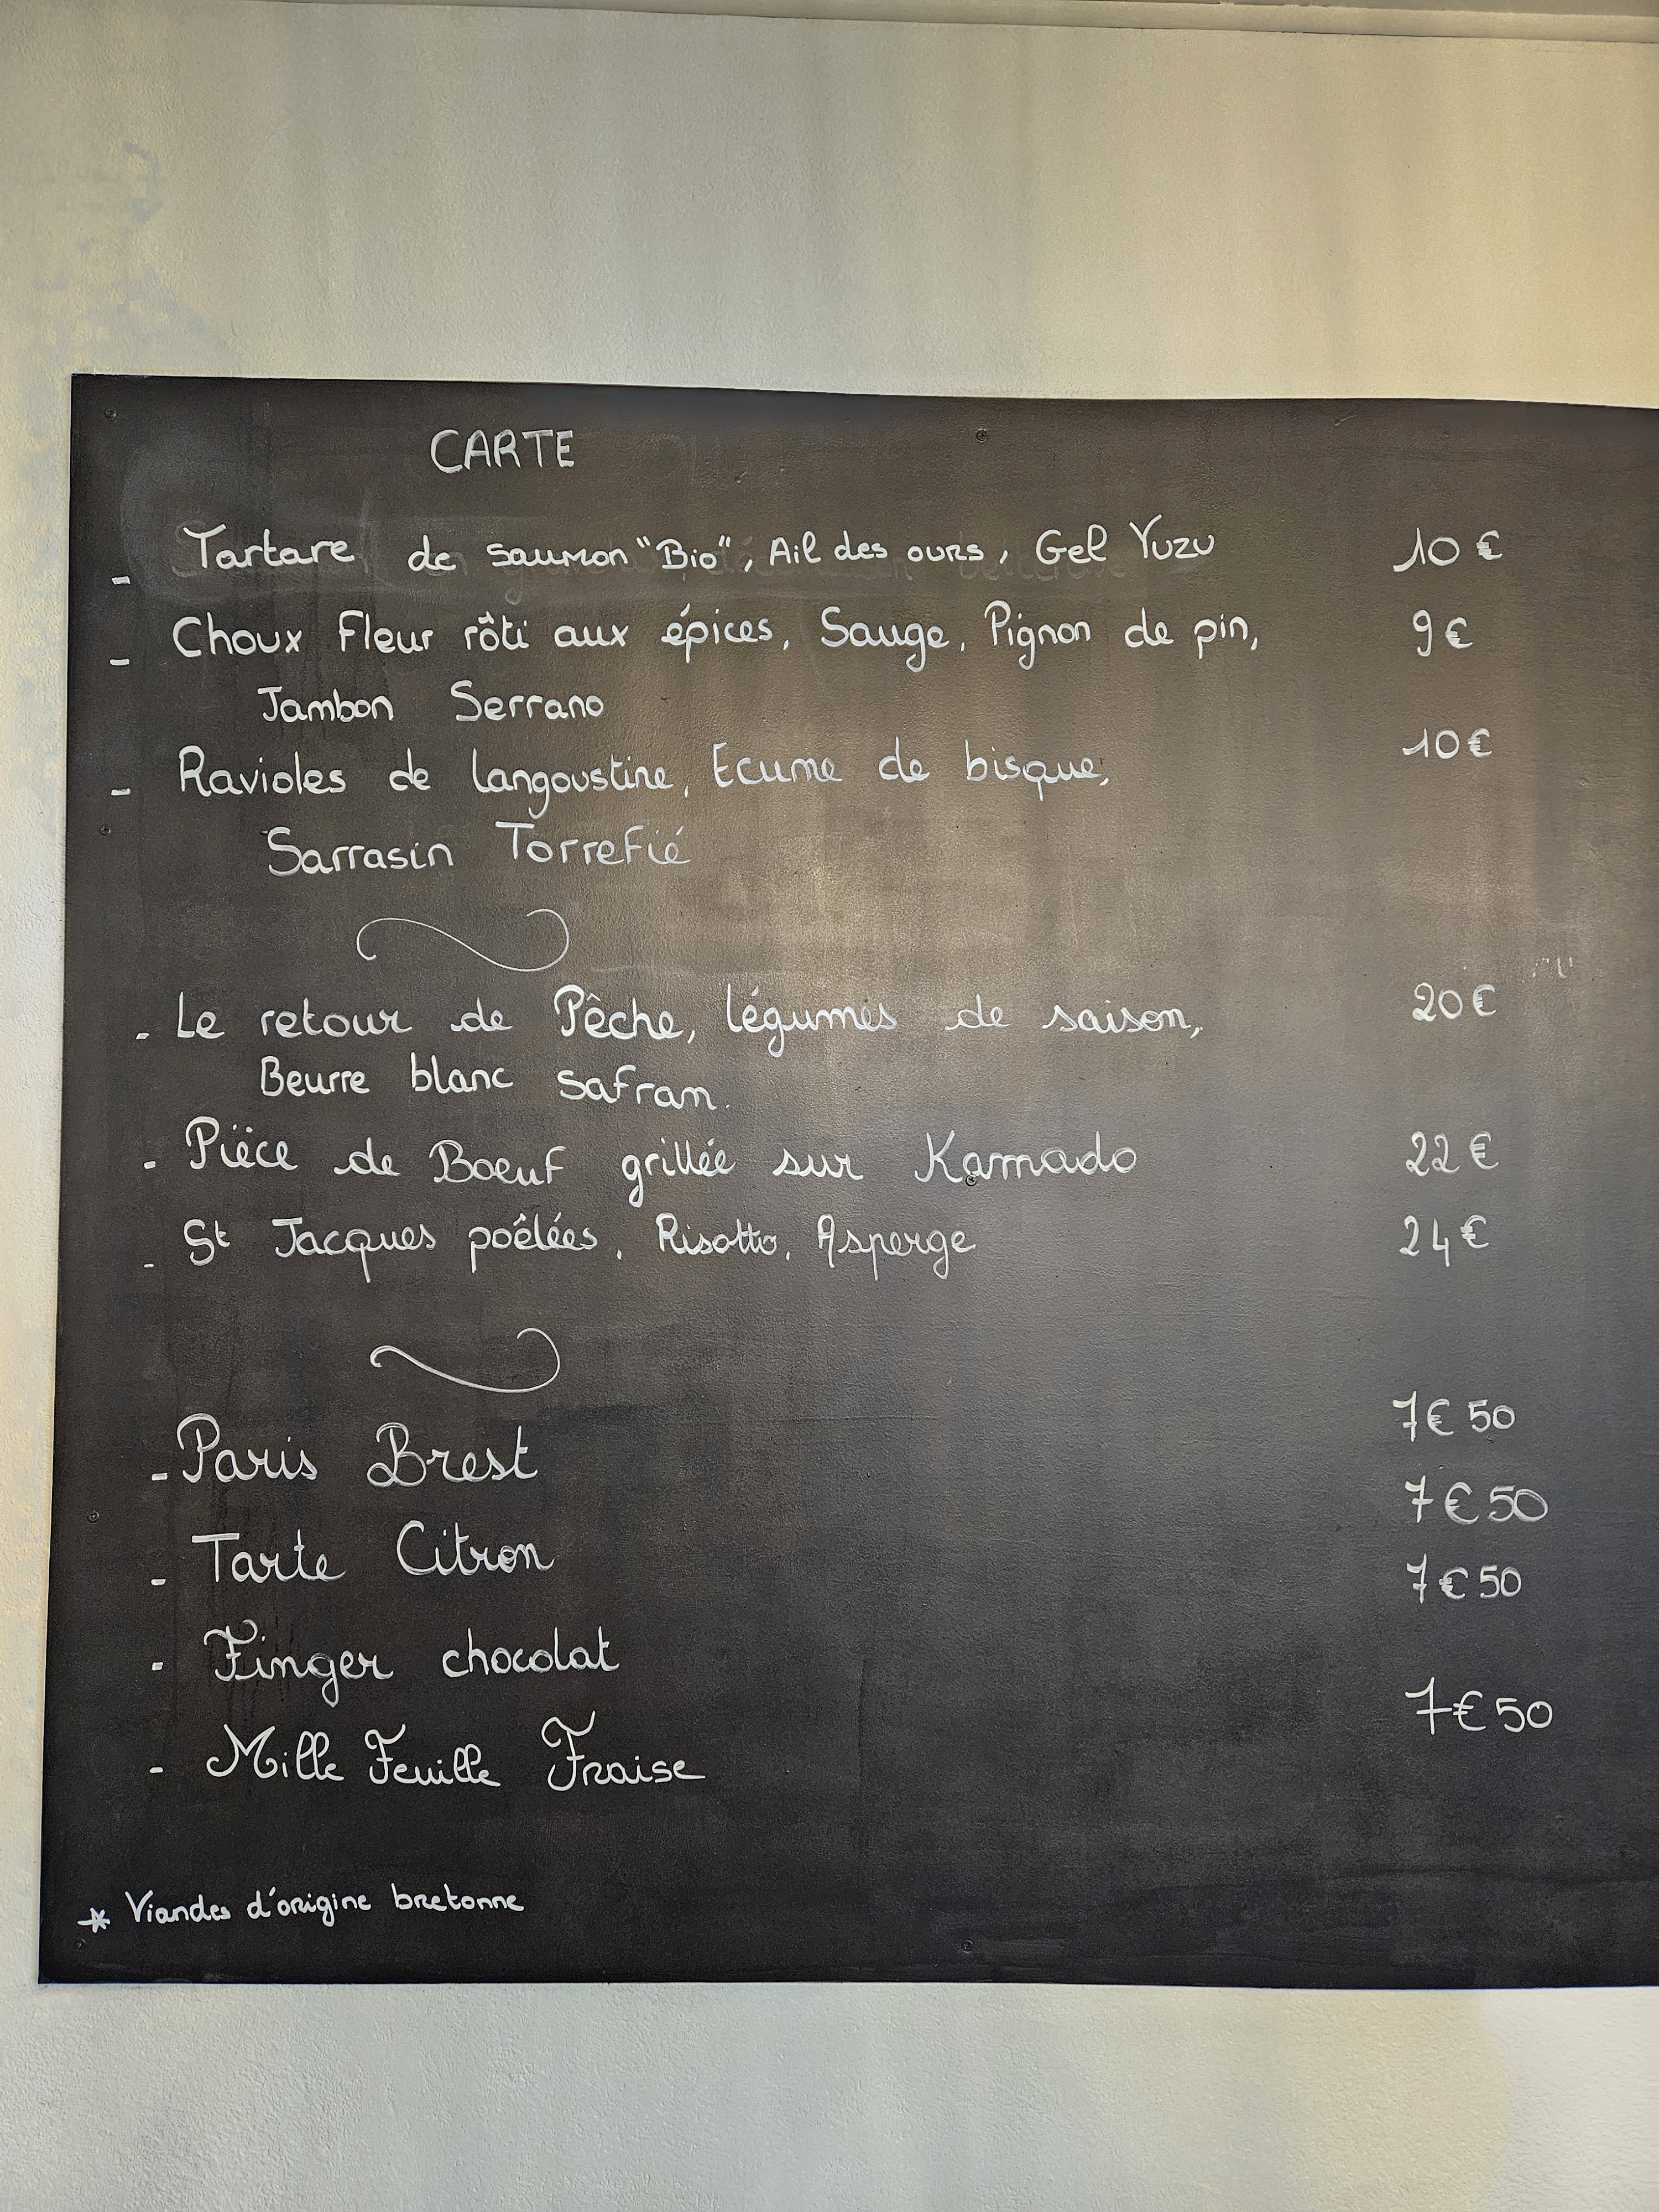 CARTE
- Tartare de saumon "Bio", Ail des ours, Gel Yuzu 10€
- Choux Fleur rôti aux épices, Sauge, Pignon de pin, 9€
Jambon Serrano
- Ravioles de langoustine, Ecume de bisque, 10€
Sarrasin Torrefié
- Le retour de Pêche, légumes de saison, 20€
Beurre blanc safran.
- Pièce de Boeuf grillée sur Kamado 22€
- St Jacques poêlées, Risotto, Asperge 24€
- Paris Brest 7€50
- Tarte Citron 7€50
- Finger chocolat 7€50
- Mille Feuille Fraise 7€50
* Viandes d'origine bretonne